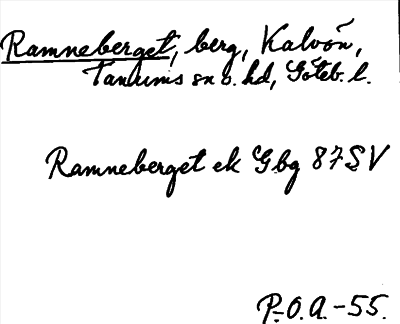 Ramneberget, berg, Kalvön,
Tanums sn o. hd, Göteb. l.
Ramneberget ek Gbg 87SV
P.O.A.-55.